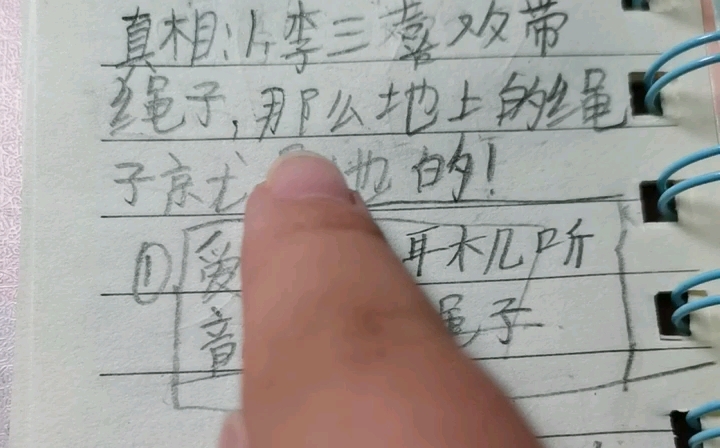 真相:1,李三喜欢带
绳子,那么地上的绳
子京尤 也的!
① 爱 耳机听
音 绳子